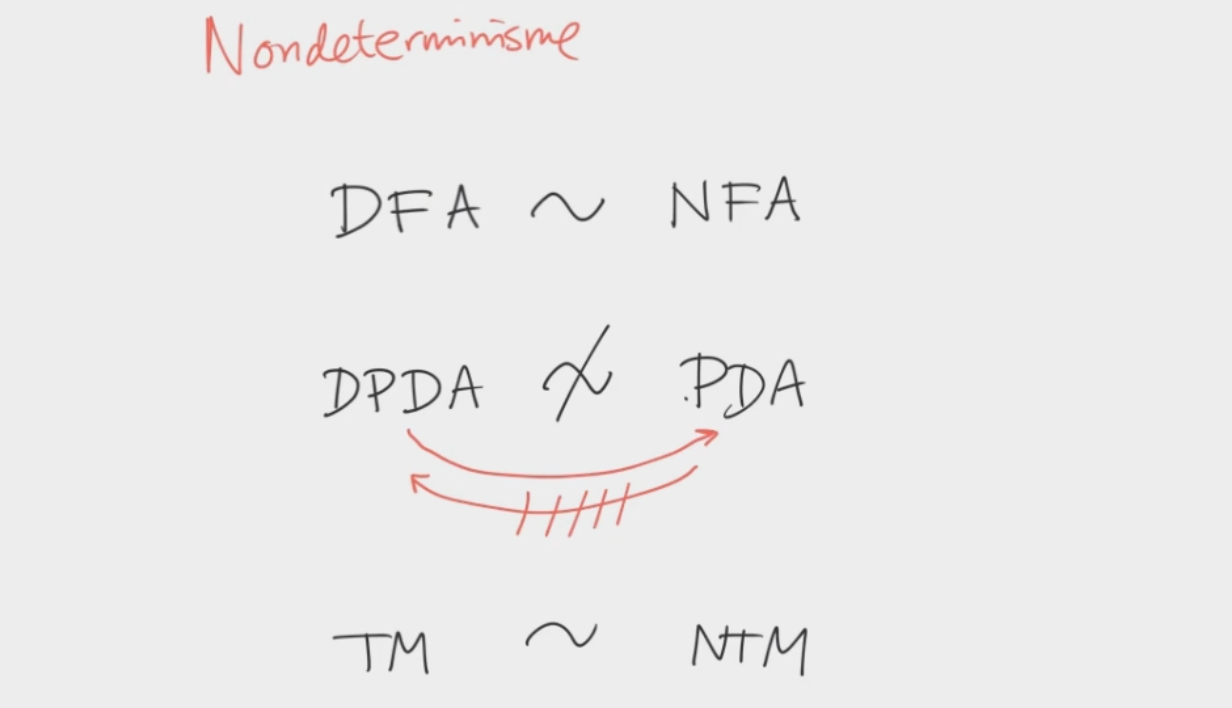 Nondeterminisme
DFA ~ NFA
DPDA ≁ PDA
TM ~ NTM